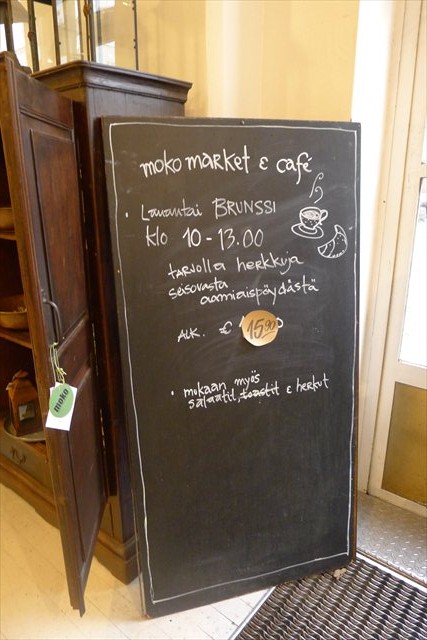 moko market & café
• Lauantai BRUNSSI
klo 10-13.00
tarjolla herkkuja
seisovasta
aamiaispöydästä
ALK. € 15,90
• mukaan myös
salaatit, toastit & herkut
moko